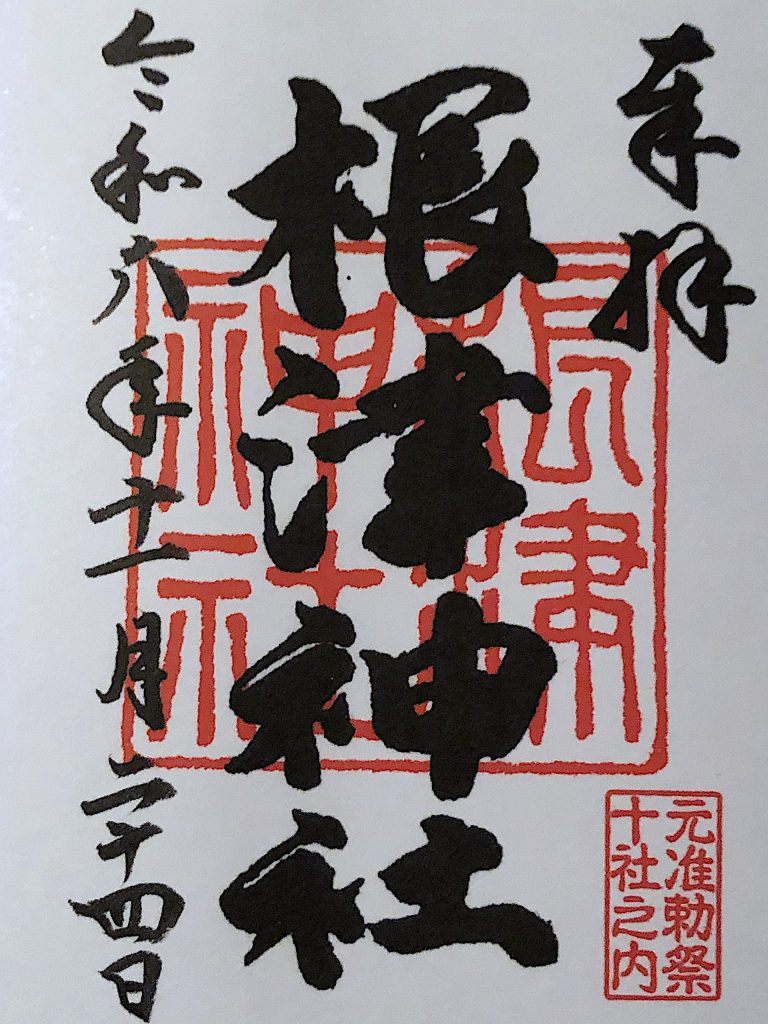 奉拝
元准勅祭
十社之内
根津神社
根津
神社
令和六年十一月二十四日